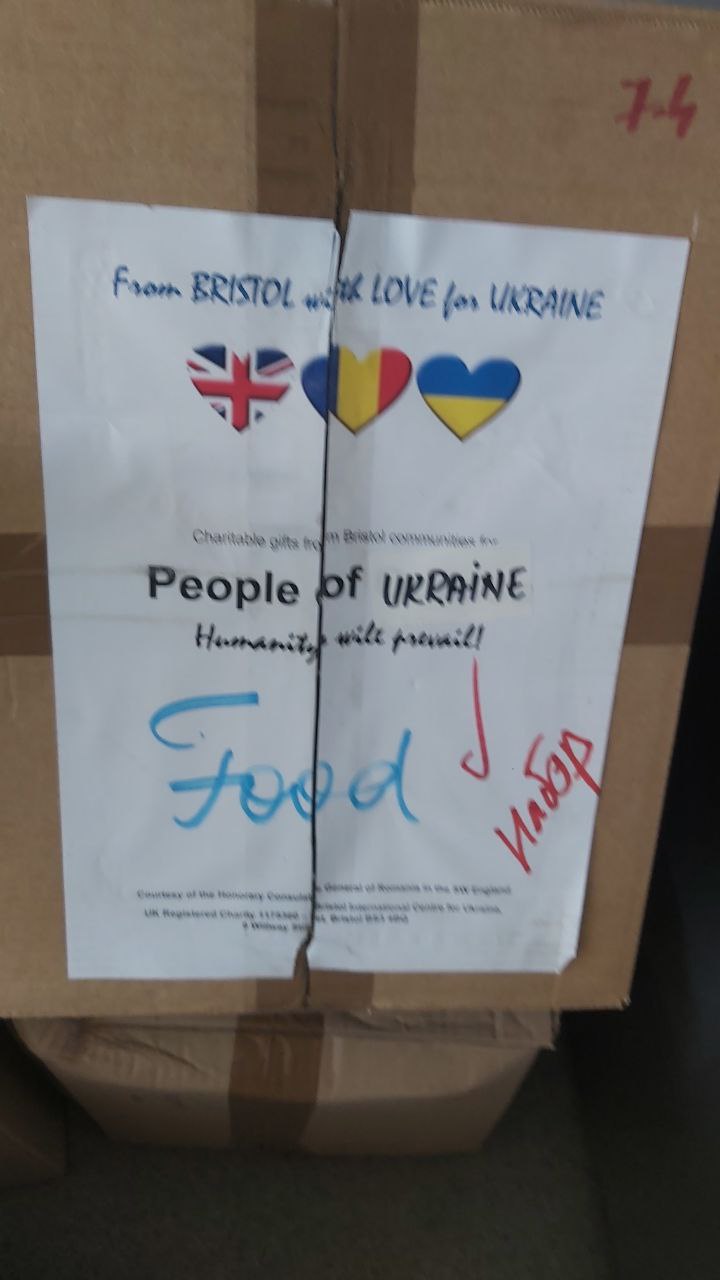 7-4
From BRISTOL with LOVE for UKRAINE
Charitable gifts from Bristol communities for
People of UKRAINE
Humanity will prevail!
Food
Набор
Courtesy of the Honorary Consulate General of Romania in the SW England
UK Registered Charity Bristol International Centre for Ukraine,
Bristol